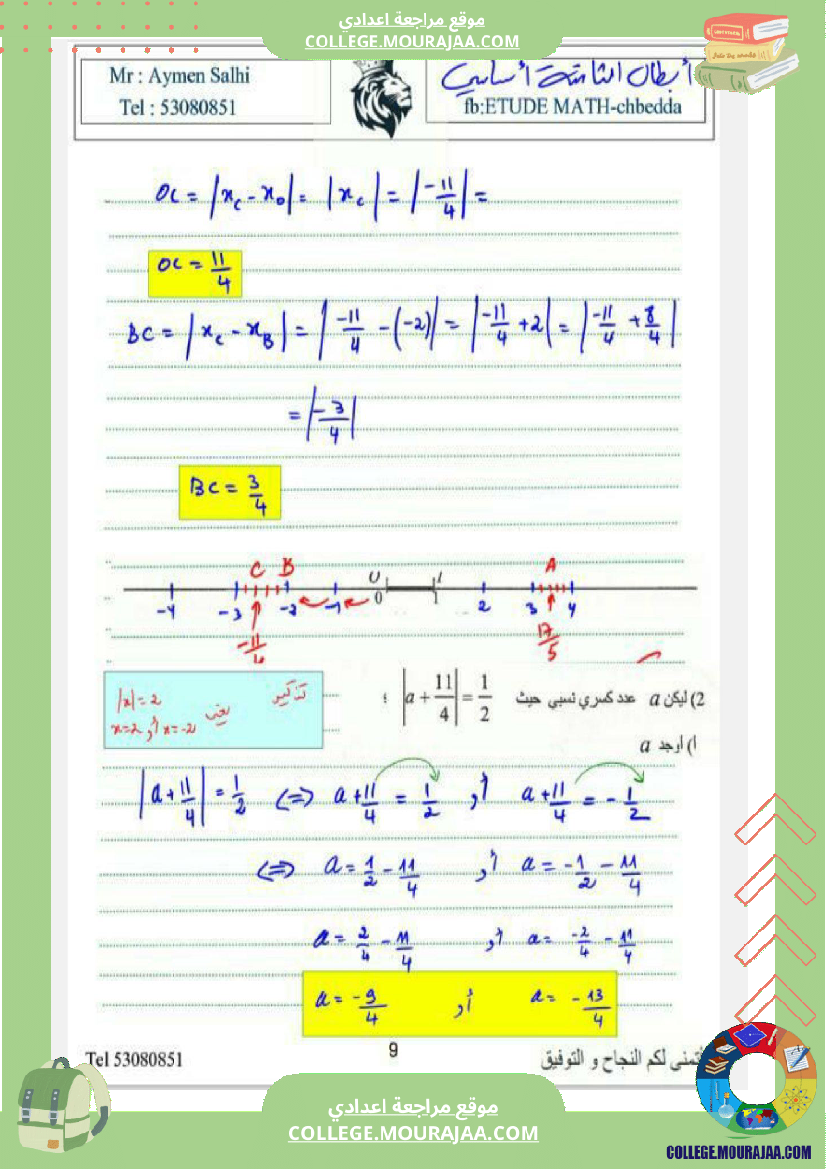 موقع مراجعة اعدادي
COLLEGE.MOURAJAA.COM
Mr : Aymen Salhi
Tel : 53080851
أبطال الثامنة أساسي
fb:ETUDE MATH-chbedda
OC = |x_C - x_O| = |x_C| = |-11/4| =
OC = 11/4
BC = |x_C - x_B| = |-11/4 - (-2)| = |-11/4 + 2| = |-11/4 + 8/4|
= |-3/4|
BC = 3/4
C B O I A
-4 -3 -2 -1 0 1 2 3 4
-11/4 17/5
2) ليكن a عدد كسري نسبي حيث |a + 11/4| = 1/2 ؛
تذكير
|x| = 2 يعني
x = 2 أو x = -2
ا) أوجد a
|a + 11/4| = 1/2 (=) a + 11/4 = 1/2 أو a + 11/4 = -1/2
(=) a = 1/2 - 11/4 أو a = -1/2 - 11/4
a = 2/4 - 11/4 أو a = -2/4 - 11/4
a = -9/4 أو a = -13/4
Tel 53080851
9
أتمنى لكم النجاح و التوفيق
موقع مراجعة اعدادي
COLLEGE.MOURAJAA.COM
COLLEGE.MOURAJAA.COM